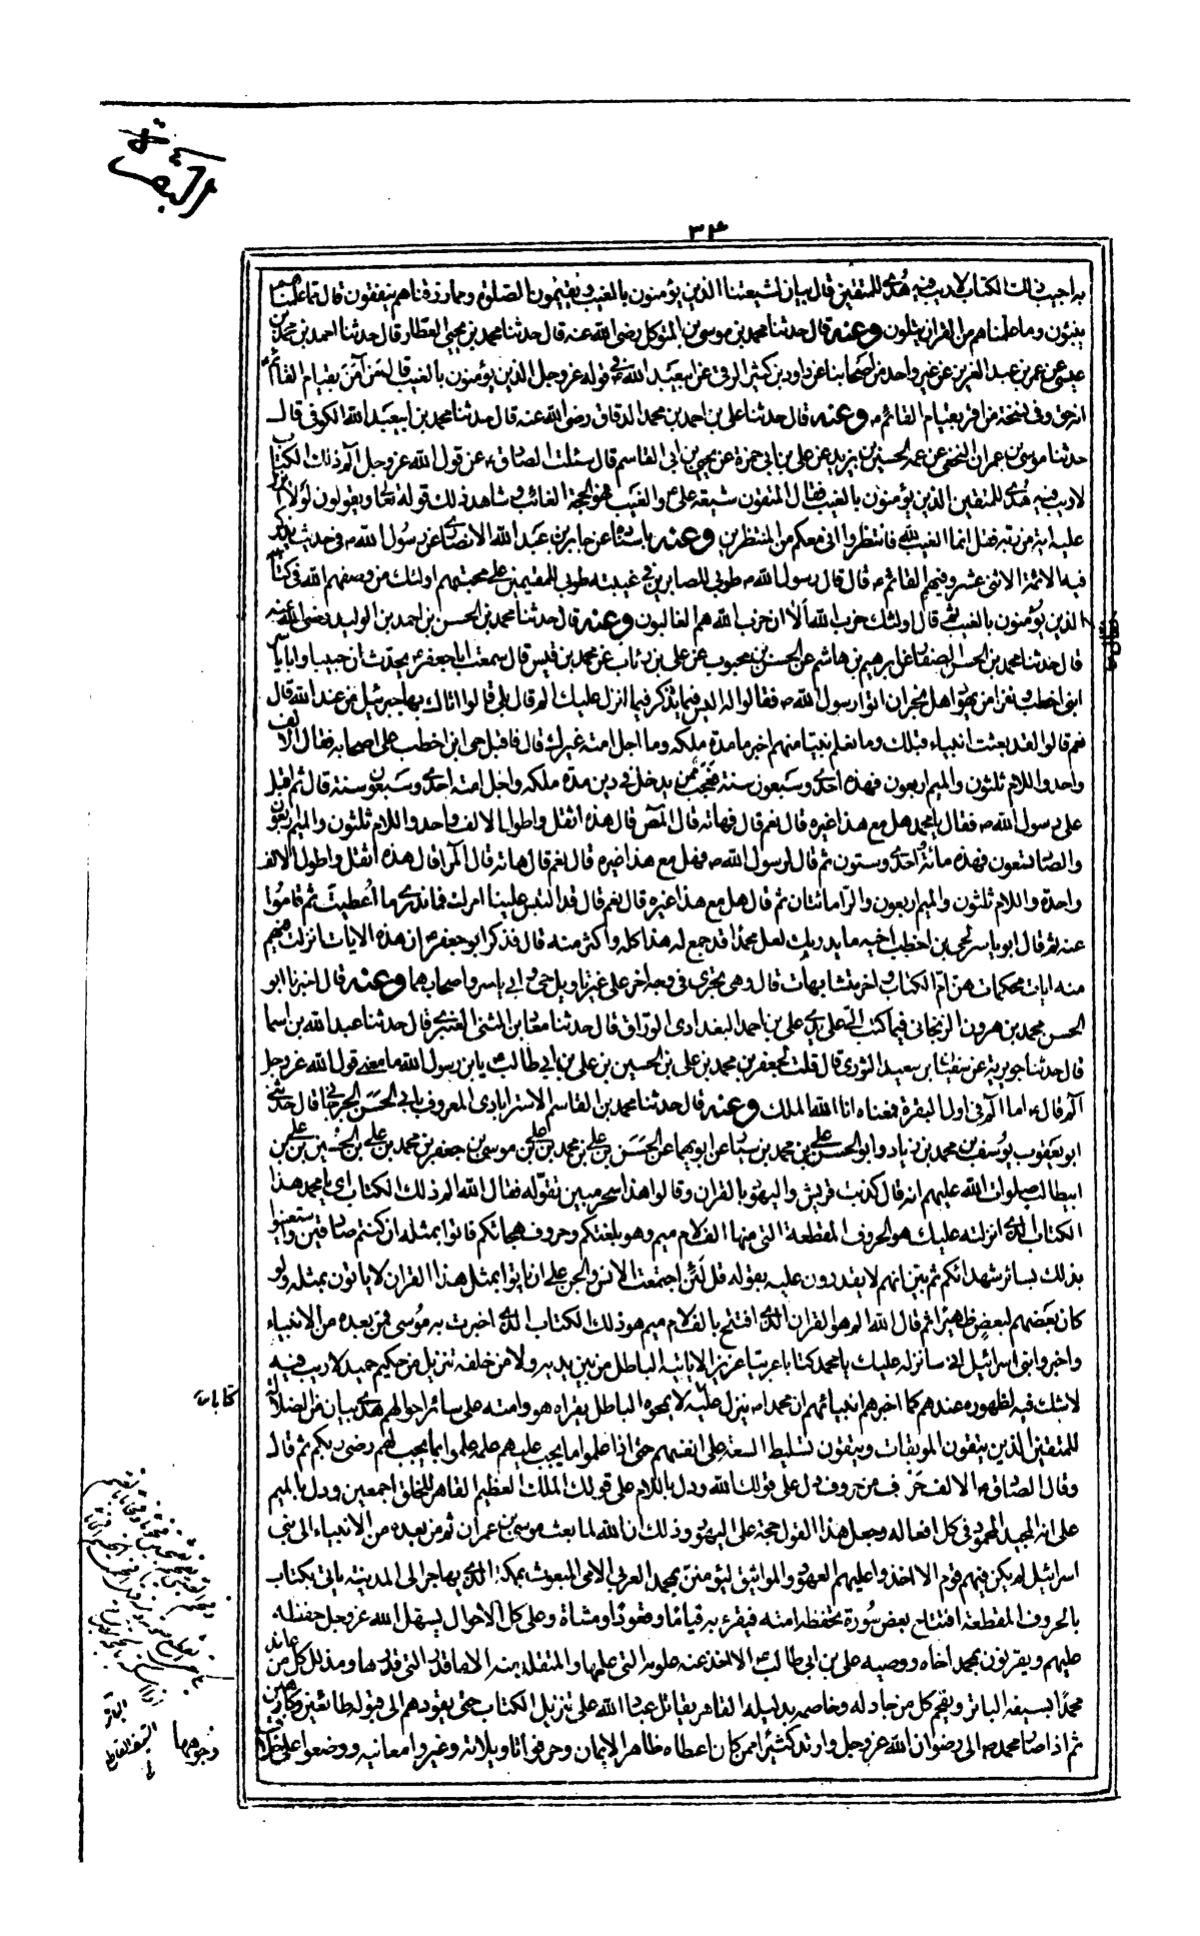 البقرة
٣٤
به اجيب ذلك الكتاب لاريب فيه هدى للمتقين قال بيان لشيعتنا الذين يؤمنون بالغيب ويقيمون الصلوة ومما رزقناهم ينفقون قال مما علمناهم
ينبئون وما علمناهم من القران يتلون وعنه قال حدثنا محمد بن موسى بن المتوكل رضى الله عنه قال حدثنا محمد بن يحيى العطار قال حدثنا احمد بن محمد بن
عيسى عن عمر بن عبد العزيز عن غير واحد من اصحابنا عن داود بن كثير الرقى عن ابيعبد الله ع في قوله عز وجل الذين يؤمنون بالغيب قال من آمن بقيام القائم ع
انه حق وفى نسخة من اقر بقيام القائم ع وعنه قال حدثنا على بن احمد بن محمد الدقاق رضى الله عنه قال حدثنا محمد بن ابيعبد الله الكوفى قال
حدثنا موسى بن عمران النخعى عن عمه الحسين بن يزيد عن على بن ابى حمزة عن يحيى بن ابى القاسم قال سئلت الصادق ع عن قول الله عز وجل آلم ذلك الكتاب
لاريب فيه هدى للمتقين الذين يؤمنون بالغيب فقال المتقون شيعة على ع والغيب فهو الحجة الغائب وشاهد ذلك قوله تعالى ويقولون لولا انزل
عليه اية من ربه فقل انما الغيب لله فانتظروا انى معكم من المنتظرين وعنه باسناده عن جابر بن عبد الله الانصارى عن رسول الله ص فى حديث يذكر
فيه الائمة الاثنى عشر وفيهم القائم ع قال قال رسول الله ص طوبى للصابرين فى غيبته طوبى للمقيمين على محبتهم اولئك من وصفهم الله فى كتابه
الذين يؤمنون بالغيب ثم قال اولئك حزب الله ألا ان حزب الله هم الغالبون وعنه قال حدثنا محمد بن الحسن بن احمد بن الوليد رضى الله عنه
قال حدثنا محمد بن الحسن الصفار عن ابرهيم بن هاشم عن الحسن بن محبوب عن على بن رئاب عن محمد بن قيس قال سمعت اباجعفر ع يحدث ان حييا وابا ياسر
ابنى اخطب ونفرا من يهود اهل نجران اتوا رسول الله ص فقالوا له اليس فيما تذكر فيما انزل عليك الم قال بلى قالوا اتاك بها جبرئيل من عند الله قال
نعم قالوا لقد بعثت انبياء قبلك وما نعلم نبيا منهم اخبر ما مدة ملكه وما اجل امته غيرك قال فاقبل حى ابن اخطب على اصحابه فقال الالف
واحد واللام ثلثون والميم اربعون فهذه احدى وسبعون سنة فعجب ممن يدخل فى دين مدة ملكه واجل امته احدى وسبعون سنة قال ثم اقبل
على رسول الله ص فقال يا محمد هل مع هذا غيره قال نعم قال فهاته قال المص قال هذه اثقل واطول الالف واحد واللام ثلثون والميم اربعون
والصاد تسعون فهذه مائة احدى وستون ثم قال لرسول الله ص فهل مع هذا غيره قال نعم قال هاته قال آلمر قال هذه اثقل واطول الالف
واحدة واللام ثلثون والميم اربعون والراء مائتان ثم قال هل مع هذا غيره قال نعم قال قد التبس علينا امرك فما ندرى ما اُعطيت ثم قاموا
عنه ثم قال ابو ياسر لحى بن اخطب اخيه ما يدريك لعل محمدا قد جمع له هذا كله واكثر منه قال فذكر ابو جعفر ع ان هذه الايات انزلت فيهم
منه ايات محكمات هن ام الكتاب واخر متشابهات قال وهى تجرى فى وجه اخر على غير تاويل حى وابى ياسر واصحابهما وعنه قال اخبرنا ابو
الحسن محمد بن هرون الزنجانى فيما كتب الى على يدى على بن احمد البغدادى الوراق قال حدثنا معاذ بن المثنى العنبرى قال حدثنا عبد الله بن اسما
قال حدثنا جويرية عن سفيان بن سعيد الثورى قال قلت لجعفر بن محمد بن على بن الحسين بن على بن ابي طالب ع يا بن رسول الله ما معنى قول الله عز وجل
آلم قال ع اما آلم فى اول البقرة فمعناه انا الله الملك وعنه قال حدثنا محمد بن القاسم الاسترابادى المعروف بابى الحسن الجرجانى قال حدثنى
ابو يعقوب يوسف بن محمد بن زياد وابو الحسن على بن محمد بن سيار عن ابويهما عن الحسن بن على بن محمد بن على بن موسى بن جعفر بن محمد بن على بن الحسين بن على بن
ابيطالب صلوات الله عليهم انه قال كذبت قريش واليهود بالقران وقالوا هذا سحر مبين تقوّله فقال الله الم ذلك الكتاب اى يا محمد هذا
الكتاب الذى انزلته عليك هو الحروف المقطعة التى منها الف لام ميم وهو بلغتكم وحروف هجائكم فاتوا بمثله ان كنتم صادقين واستعينوا
بذلك بسائر شهدائكم ثم بين انهم لايقدرون عليه بقوله قل لئن اجتمعت الانس والجن على ان ياتوا بمثل هذا القران لاياتون بمثله ولو
كان بعضهم لبعض ظهيرا ثم قال الله الم هو القران الذى افتتح بالف لام ميم هو ذلك الكتاب الذى اخبرت به موسى فمن بعده من الانبياء
واخبروا بنى اسرائيل انى سانزله عليك يا محمد كتابا عربيا عزيزا لاياتيه الباطل من بين يديه ولا من خلفه تنزيل من حكيم حميد لاريب فيه
لاشك فيه لظهوره عندهم كما اخبرهم انبيائهم ان محمدا ص ينزل عليه لا يمحوه الباطل يقراه هو وامته على سائر احوالهم هدى بيان من الضلالة
للمتقين الذين يتقون الموبقات ويتقون تسليط السفه على انفسهم حتى اذا علموا ما يجب عليهم علمه عملوا بما يجب لهم رضى ربهم ثم قال
وقال الصادق ع الالف حرف من حروف دل على قولك الله ودل باللام على قولك الملك العظيم القاهر للخلق اجمعين ودل بالميم
على انه المجيد المحمود فى كل افعاله وجعل هذا القول حجة على اليهود وذلك ان الله لما بعث موسى بن عمران ثم من بعده من الانبياء الى بنى
اسرائيل لم يكن فيهم قوم الا اخذوا عليهم العهود والمواثيق ليؤمنن بمحمد العربى الامى المبعوث بمكة الذى يهاجر الى المدينة ياتى بكتاب
بالحروف المقطعة افتتاح بعض سورة تحفظه امته فيقرؤنه قياما وقعودا ومشاة وعلى كل الاحوال يسهل الله عز وجل حفظه
عليهم ويقرنون بمحمد اخاه ووصيه على بن ابى طالب الاخذ عنه علومه التى علمها والمتقلد منه لاماناته التى قلدها ومذلل كل من عاند
محمدا بسيفه الباتر ويفحم كل من جادله وخاصمه بدليله القاهر يقاتل عباد الله على تنزيل الكتاب حتى يقودهم الى قبوله طائعين وكارهين
ثم اذا صار محمد ص الى رضوان الله عز وجل وارتد كثير ممن كان اعطاه ظاهر الايمان وحرفوا تاويلاته وغيروا معانيه ووضعوها على خلاف
كتابات
الباتر
السيف القاطع
وجوهها